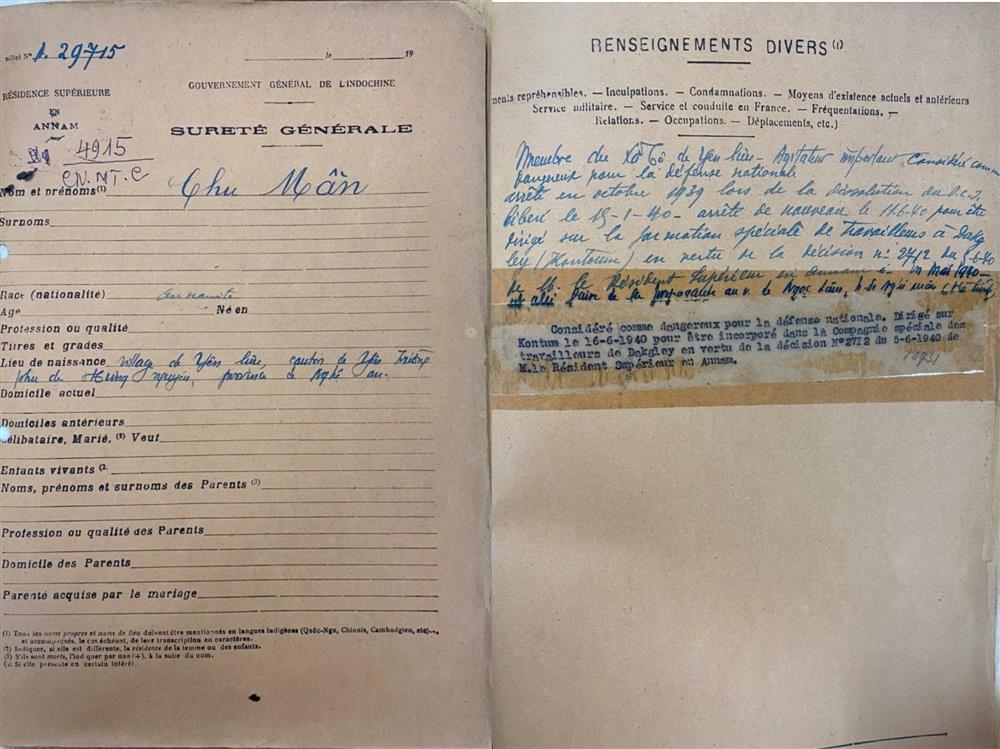 uillet No A. 29715
le 19
RÉSIDENCE SUPÉRIEURE
EN
ANNAM
GOUVERNEMENT GÉNÉRAL DE L'INDOCHINE
SURETÉ GÉNÉRALE
4915
CN.NT.C
Nom et prénoms(1) Chu Mân
Surnoms
Race (nationalité) annamite
Age Né en
Profession ou qualité
Titres et grades
Lieu de naissance village de Yên lưu, canton de Yên Trường
phu de Hưng nguyên, province de Nghê an.
Domicile actuel
Domiciles antérieurs
Célibataire, Marié, (2) Veuf
Enfants vivants (2
Noms, prénoms et surnoms des Parents (3)
Profession ou qualité des Parents
Domicile des Parents
Parenté acquise par le mariage
(1) Tous les noms propres et noms de lieu doivent être mentionnés en langues indigènes (Quôc-Ngu, Chinois, Cambodgien, etc)...
et accompagnés, le cas échéant, de leur transcription en caractères.
(2) Indiquer, si elle est différente, la résidence de la femme ou des enfants.
(3) S'ils sont morts, l'indiquer par une (+), à la suite du nom.
(4) Si elle présente un certain intérêt.
RENSEIGNEMENTS DIVERS (1)
ments repréhensibles. — Inculpations. — Condamnations. — Moyens d'existence actuels et antérieurs
Service militaire. — Service et conduite en France. — Fréquentations. —
Relations. — Occupations. — Déplacements, etc.)
Membre du de Yên-lưu - Agitateur important, Considéré comme
dangereux pour la défense nationale
arrêté en octobre 1939 lors de la dissolution du P.C.I.
libéré le 15-1-40 - arrêté de nouveau le 11-6-40 pour être
dirigé sur la formation spéciale de travailleurs à Dak
gley (Kontoum) en vertu de la décision n° 2712 du 5-6-40
de M. le Résident Supérieur en annam En mai 1940
est allé faire de la propagande au v. de Ngọc
Considéré comme dangereux pour la défense nationale. Dirigé sur
Kontum le 16-6-1940 pour être incorporé dans la Compagnie spéciale des
travailleurs de Dakgley en vertu de la décision N°2712 du 5-6-1940 de
M.le Résident Supérieur en Annam.